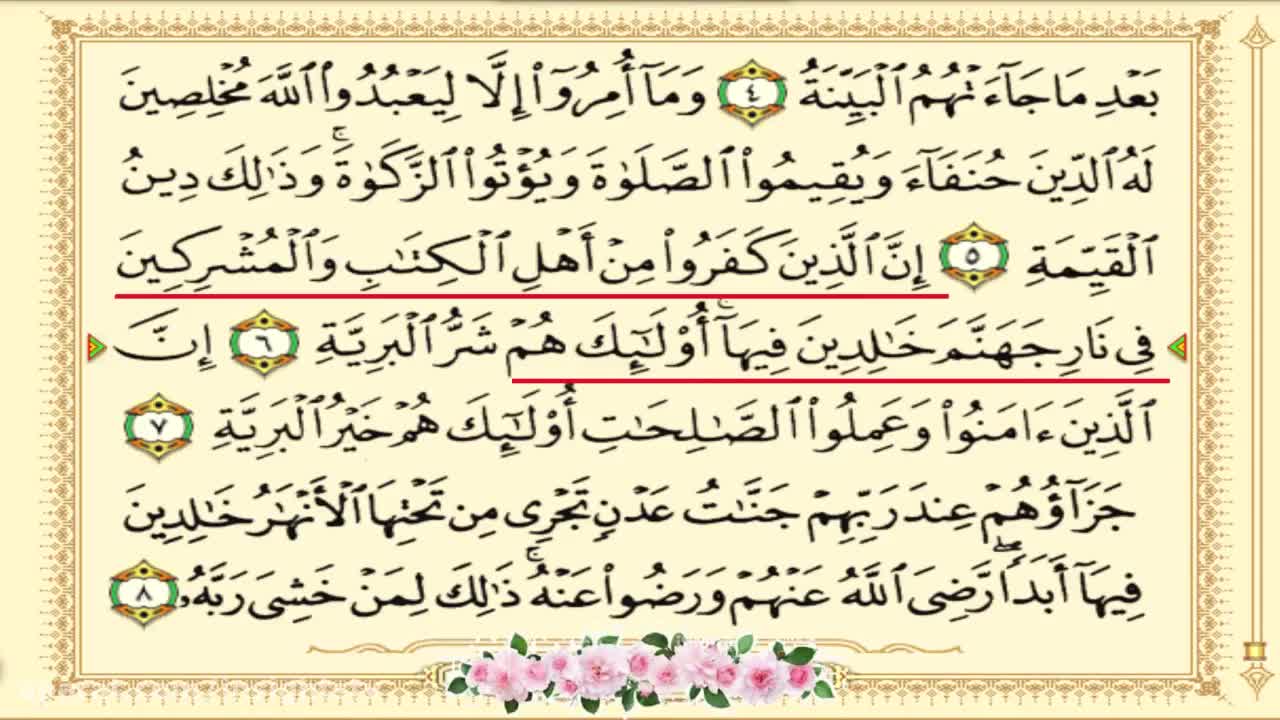 بَعْدِ مَا جَآءَتْهُمُ ٱلْبَيِّنَةُ ٤ وَمَآ أُمِرُوٓا۟ إِلَّا لِيَعْبُدُوا۟ ٱللَّهَ مُخْلِصِينَ
لَهُ ٱلدِّينَ حُنَفَآءَ وَيُقِيمُوا۟ ٱلصَّلَوٰةَ وَيُؤْتُوا۟ ٱلزَّكَوٰةَ ۚ وَذَٰلِكَ دِينُ
ٱلْقَيِّمَةِ ٥ إِنَّ ٱلَّذِينَ كَفَرُوا۟ مِنْ أَهْلِ ٱلْكِتَـٰبِ وَٱلْمُشْرِكِينَ
فِى نَارِ جَهَنَّمَ خَـٰلِدِينَ فِيهَآ ۚ أُو۟لَـٰٓئِكَ هُمْ شَرُّ ٱلْبَرِيَّةِ ٦ إِنَّ
ٱلَّذِينَ ءَامَنُوا۟ وَعَمِلُوا۟ ٱلصَّـٰلِحَـٰتِ أُو۟لَـٰٓئِكَ هُمْ خَيْرُ ٱلْبَرِيَّةِ ٧
جَزَآؤُهُمْ عِندَ رَبِّهِمْ جَنَّـٰتُ عَدْنٍ تَجْرِى مِن تَحْتِهَا ٱلْأَنْهَـٰرُ خَـٰلِدِينَ
فِيهَآ أَبَدًا ۖ رَّضِىَ ٱللَّهُ عَنْهُمْ وَرَضُوا۟ عَنْهُ ۚ ذَٰلِكَ لِمَنْ خَشِىَ رَبَّهُۥ ٨